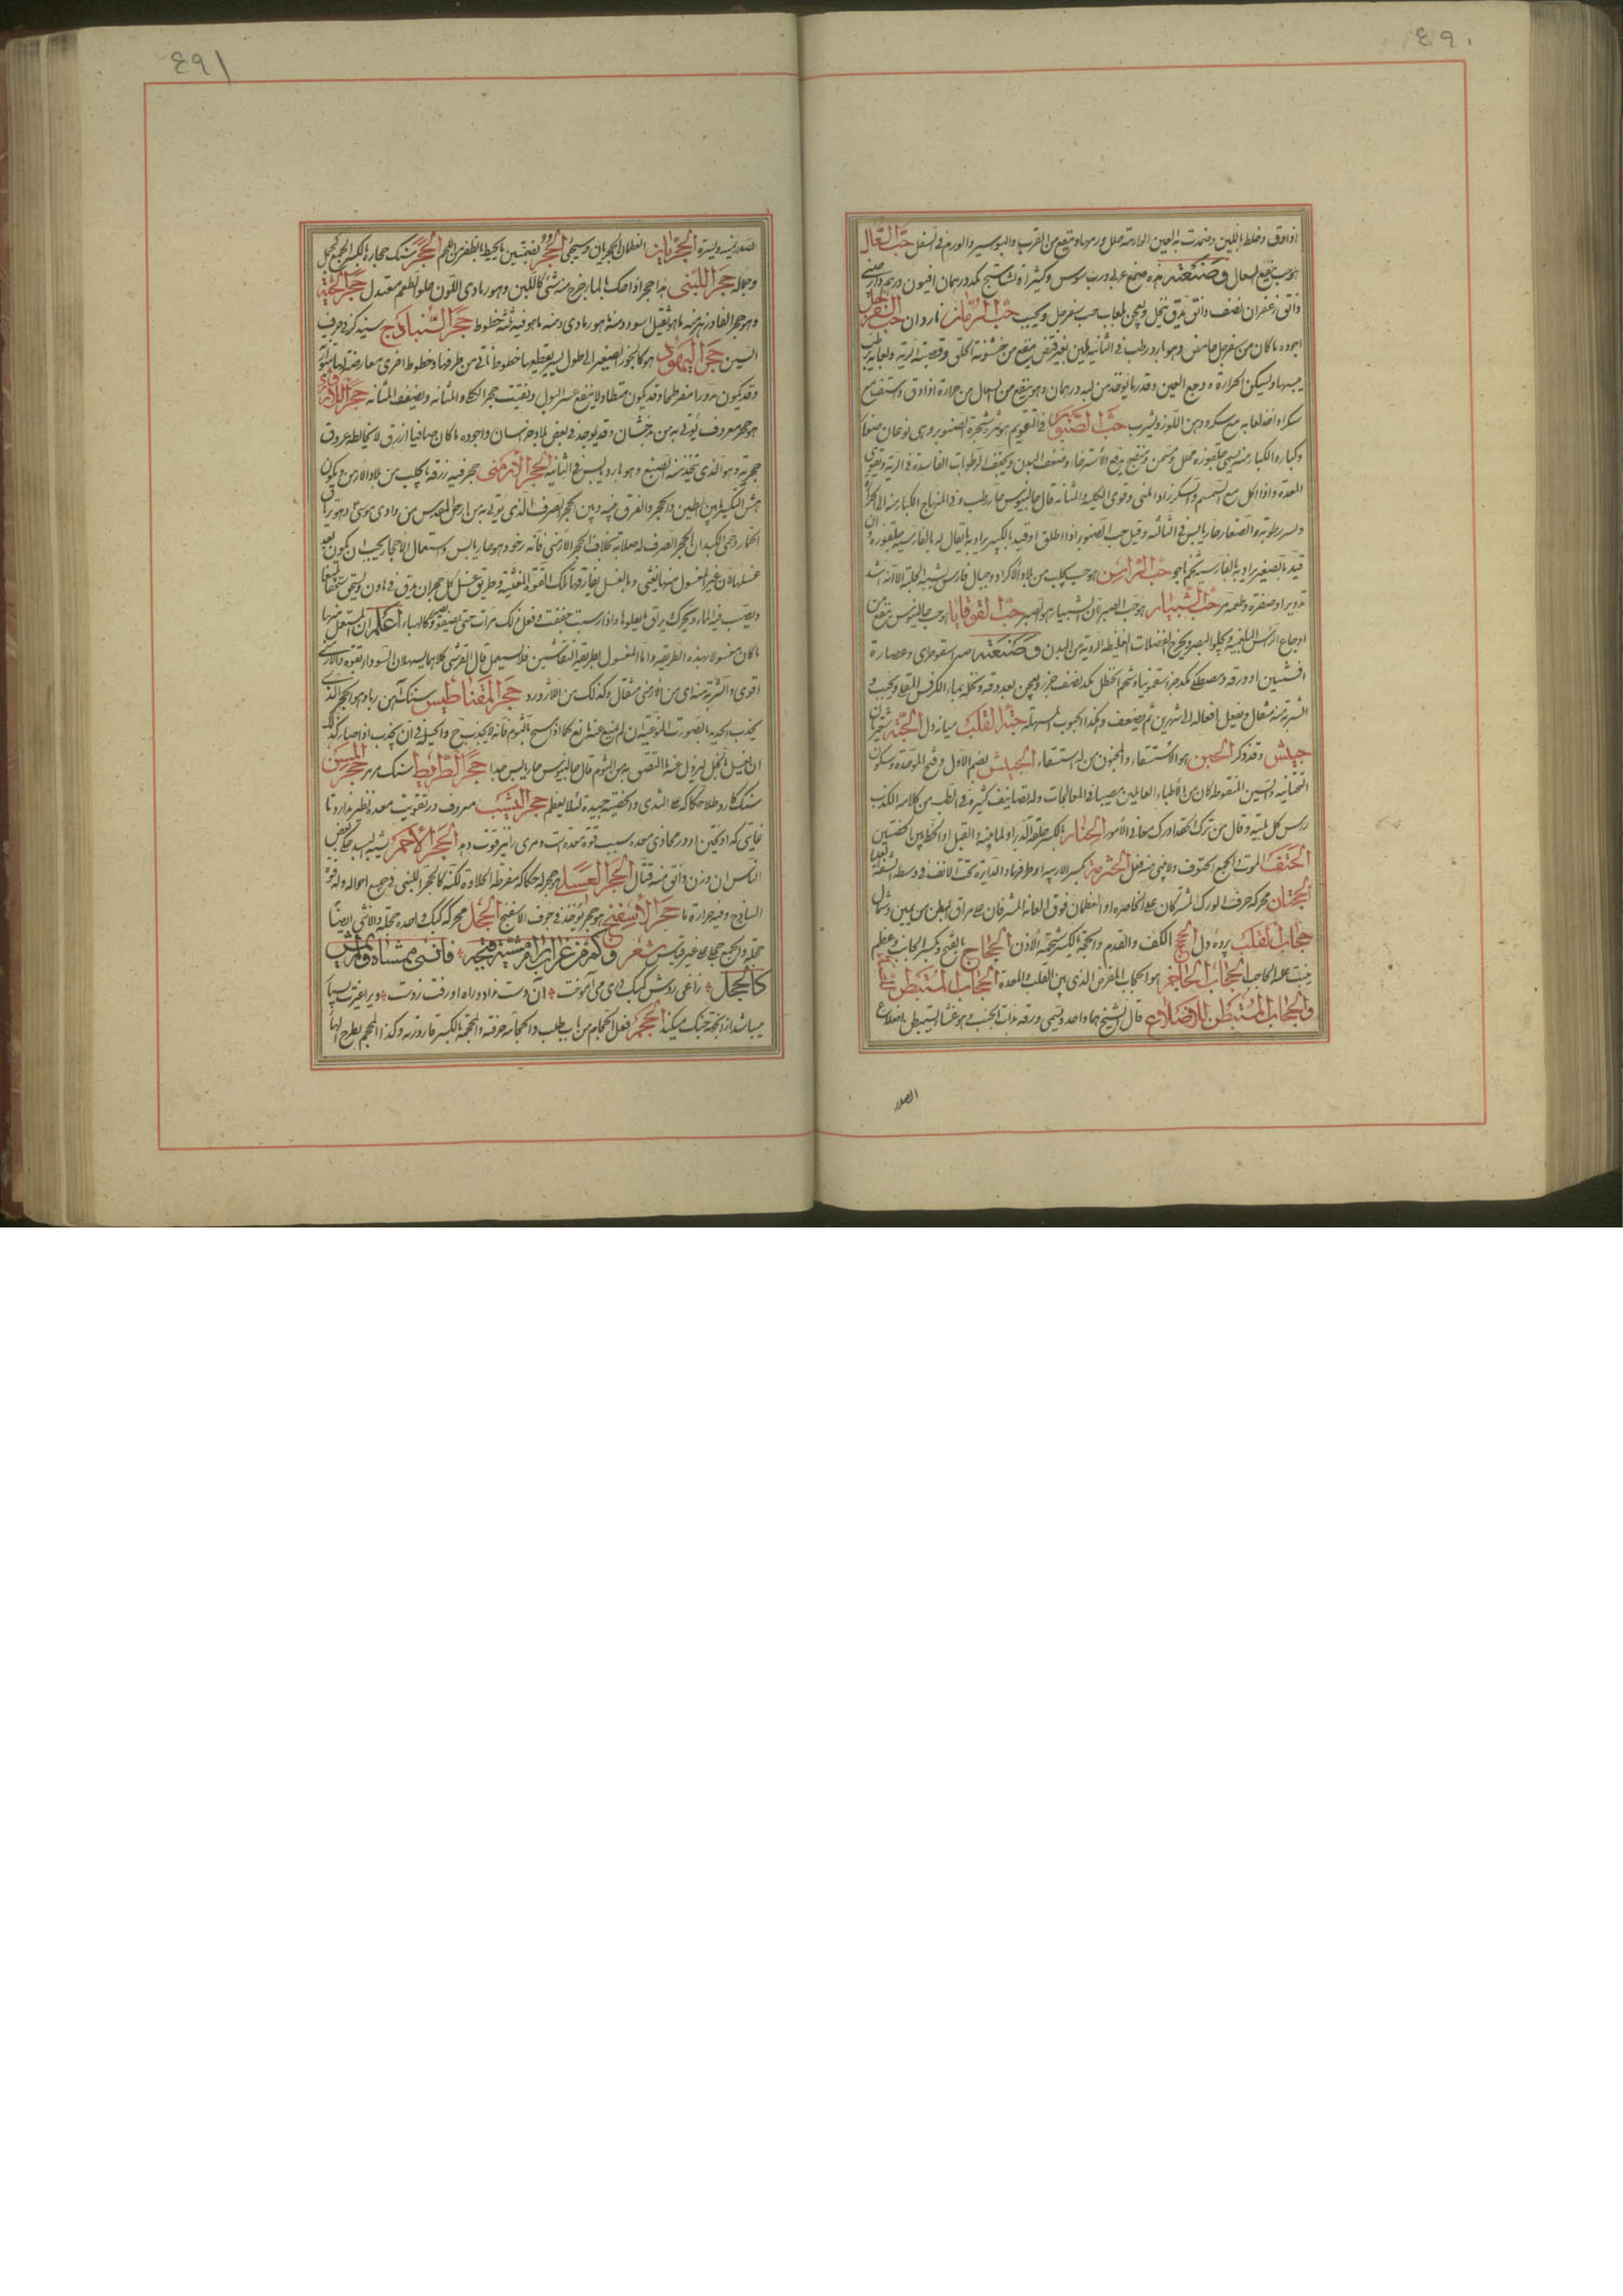 ٤٩٠
اذا دق وخلط باللبن وضمدت به العين الوارمة حلل ورمها وينفع من القرب والبواسير والورم فى السفل حب السعال
هو حب ينفع السعال وصنعته بزره صمغ عربى ورب سوس وكثيرا ونشاستج مكد درهمان افيون درهم دارصينى
دانق زعفران نصف دانق يدق ينخل ويعجن بلعاب حب سفرجل ويحبب حب الرمان ناردان حب السفرجل
اجوده ما كان من سفرجل حامض وهو بارد رطب فى الثانية يلين بغير قبض ينفع من خشونة الحلق وقصبة الرية ولعابه يرطب
يبسها ويسكن الحرارة ووجع العين وقدر ما يؤخذ من لبه درهمان وهو ينفع من السعال من حرارة اذا دق واستف مع
سكر او اخذ لعابه مع سكر ودهن اللوز ويشرب حب الصنوبر فى التقويم هو ثمر شجرة الصنوبر وهى نوعان صغار
وكبار والكبار منه يسمى جلغوزه محلل ومسمن ومنضج يدفع الاسترخاء وضعف البدن ويجفف الرطوبات الفاسدة فى الرية ويقوى
المعدة واذا اكل مع السمسم والسكر زاد المنى وقوى الكلية والمثانة قال جالينوس حار رطب وفى المنهاج الكبار منه الى الحرارة
ويسير رطوبة والصغار حار يابس فى الثالثة وقيل حب الصنوبر اذا اطلق او قيد بالكبير يراد به ما يقال له بالفارسية جلغوزه وان
قيد بالصغير يراد به بالفارسية تخم ناجو حب الراس هو حب يجلب من بلاد الاكراد وجبال فارس يشبه الحلبة الا انه اشد
تدويرا وصفرة وطعمه مر حب الشبيار هو حب الصبر لان الشبيار هو الصبر حب القوقايا هو حب جالينوس ينفع من
اوجاع الراس البلغمية ويجلو البصر ويخرج الفضلات الغليظة الردية من البدن وصنعته صبر اسقوطرى وعصارة
افسنتين او ورقه ومصطكى مكد جزء سقمونيا وشحم الحنظل مكد نصف جزء ويعجن بعد دقه ونخله بماء الكرفس المقطر ويحبب و
الشربة منه مثقال ويفعل افعاله الى شهرين ثم يضعف وهكذا الحبوب المسهلة حبة القلب ميانه دل الحبة
حبيش وقد ذكر الحبن هو الاستسقاء والمحبون من له استسقاء الحبيش بضم الاول وفتح الموحدة وسكون
التحتانية والشين المنقوطة كان من الاطباء العالمين مصيبا فى المعالجات وله تصانيف كثيرة فى الطب من كلامه الكذب
راس كل بلية وقال من ترك الحقد ادرك معالى الامور الحتار بالكسر حلقة الدبر او لما بينه والقبل او الخط بين الخصيتين
الحتف الموت والجمع الحتوف ولا يبنى منه فعل الحثرمة بكسر الارنبة او طرفها والدايرة تحت الانف فى وسط الشفة العليا
الحجبتان محركة حرفا الورك المشرفان على الخاصرة او العظمان فوق العانة المشرفان على مراق البطن من يمين وشمال
حجاب القلب پرده دل الحج الكف والقدم والحجة بالكسر شحمة الاذن الحجاج بالفتح وكسر الجانب وعظم
ينبت عليه الحاجب الحجاب الحاجز هو الحجاب المعترض الذى بين القلب والمعدة الحجاب المستبطن للصدر
والحجاب المستبطن للاضلاع قال الشيخ هما واحد ويسمى ورمه ذات الجنب وهو غشاء يستبطن اضلاع
الصدر
٤٩١
الصدر يمنة ويسرة الحجريان العظمان الحجريان وسيجئ الحجر بفتحتين ما يحيط بالظفر من اللحم الحجر سنك حجارة بالكسر الجمع
وجماله حجر اللبنى هذا حجر اذا حك بالماء خرج منه شئ كاللبن وهو رمادى اللون حلو الطعم معتدل حجر الحية
وهو حجر الفادزهر منه ما هو ثقيل اسود ومنه ما هو رمادى ومنه ما هو فيه ثلثة خطوط حجر السنباذج سيذكر فى حرف
السين حجر اليهود هو كالجوز الصغير الى طول يسير يقطعها خطوط تاتى من طرفها وخطوط اخرى معارضة لها متوازية
وقد يكون مدورا مفرطحا وقد يكون متطاولا ينفع عسر البول وتفتيت حجر الكلى والمثانة ويضعف المثانة حجر اللازورد
هو حجر معروف يؤتى به من بدخشان وقد يوجد فى بعض بلاد خراسان واجوده ما كان صافيا ازرق لا يخالطه عروق
حجرية وهو الذى يتخذ منه الصبغ وهو بارد يابس فى الثانية الحجر الارمنى حجر فيه زرقة ما يجلب من بلاد الارمن ويكون
هش التكسر بين الطين والحجر والفرق فيه وبين الحجر الصرف الذى يؤتى به من ارض المقدس من وادى موسى وهو براق
اخمار دحى الكبدان الحجر الصرف له صلابة بخلاف الحجر الارمنى فانه رخو وهو حار يابس واستعمال الاحجار يجب ان يكون بعد
غسلها لان غير المغسول منها يغثى وبالغسل يفارقها تلك القوة المغثية وطريق غسل كل حجر ان يدق فى هاون ويسحق سحقا ناعما
ويصب فيه الماء ويحرك ثم يراق ما يعلوها واذا رسبت جففت وفعل ذلك مرات حتى يصفو وكالهباء اعلم ان المستعمل منها
ما كان مغسولا بهذه الطريقة واما المغسول بطريقة النقاشين فلا يستعمل قال القرشى كلاهما يسهلان السوداء بقوة والارمنى
اقوى والشربة منه اى من الارمنى مثقال وكذلك من اللازورد حجر المغناطيس سنك آهن ربا وهو الحجر الذى
يجذب الحديد بالصورة النوعية ان لم يمنع عنه مانع كما اذا مسح بالثوم فانه لا يجذب ح والحيلة فى ان يجذب اذا صار كذلك
ان يغسل بالخل ليزول عنه ما التصق به من الثوم قال جالينوس حار يابس جدا حجر الطرابيط سنك مرمر حجر المسن
سنك كارد طلا حكاكه على الثدى والخصية جيدة لئلا يعظم حجر اليشب معروف در تقويت معده نظير ندارد تا
غايتى كه آويختن او در محاذى معده سبب قوة معده است ومرى را نيز قوت دهد الحجر الاحمر يشبه البسد حكى بعض
الناس ان وزن دانق منه قتال الحجر العسلى هو حجر له حكاكة مفرطة الحلاوة لكنه كالحجر اللبنى فى جميع احواله وله قوة
الساذج وفيه حرارة ما حجر الاسفنج هو حجر يوخذ فى جوف الاسفنج الحجل محركة كبك واحده حجلة والانثى ايضا
حجلة وان جمع حجلى على غير قياس شعر وكم من غراب رام مشية قبجة فانسى ممشاه ولم يمش
كالحجل زاغى روش كبك درى مى آموخت آن دست نداد وراه او رفت ز دست وبر اغيرت بسيار
ميباشد از آنجهة جنگ ميكند الحجم فعل الحجام من باب طلب والحجامة حرفته والمحجمة بالكسر قارورته وكذا المحجم بطرح الهاء